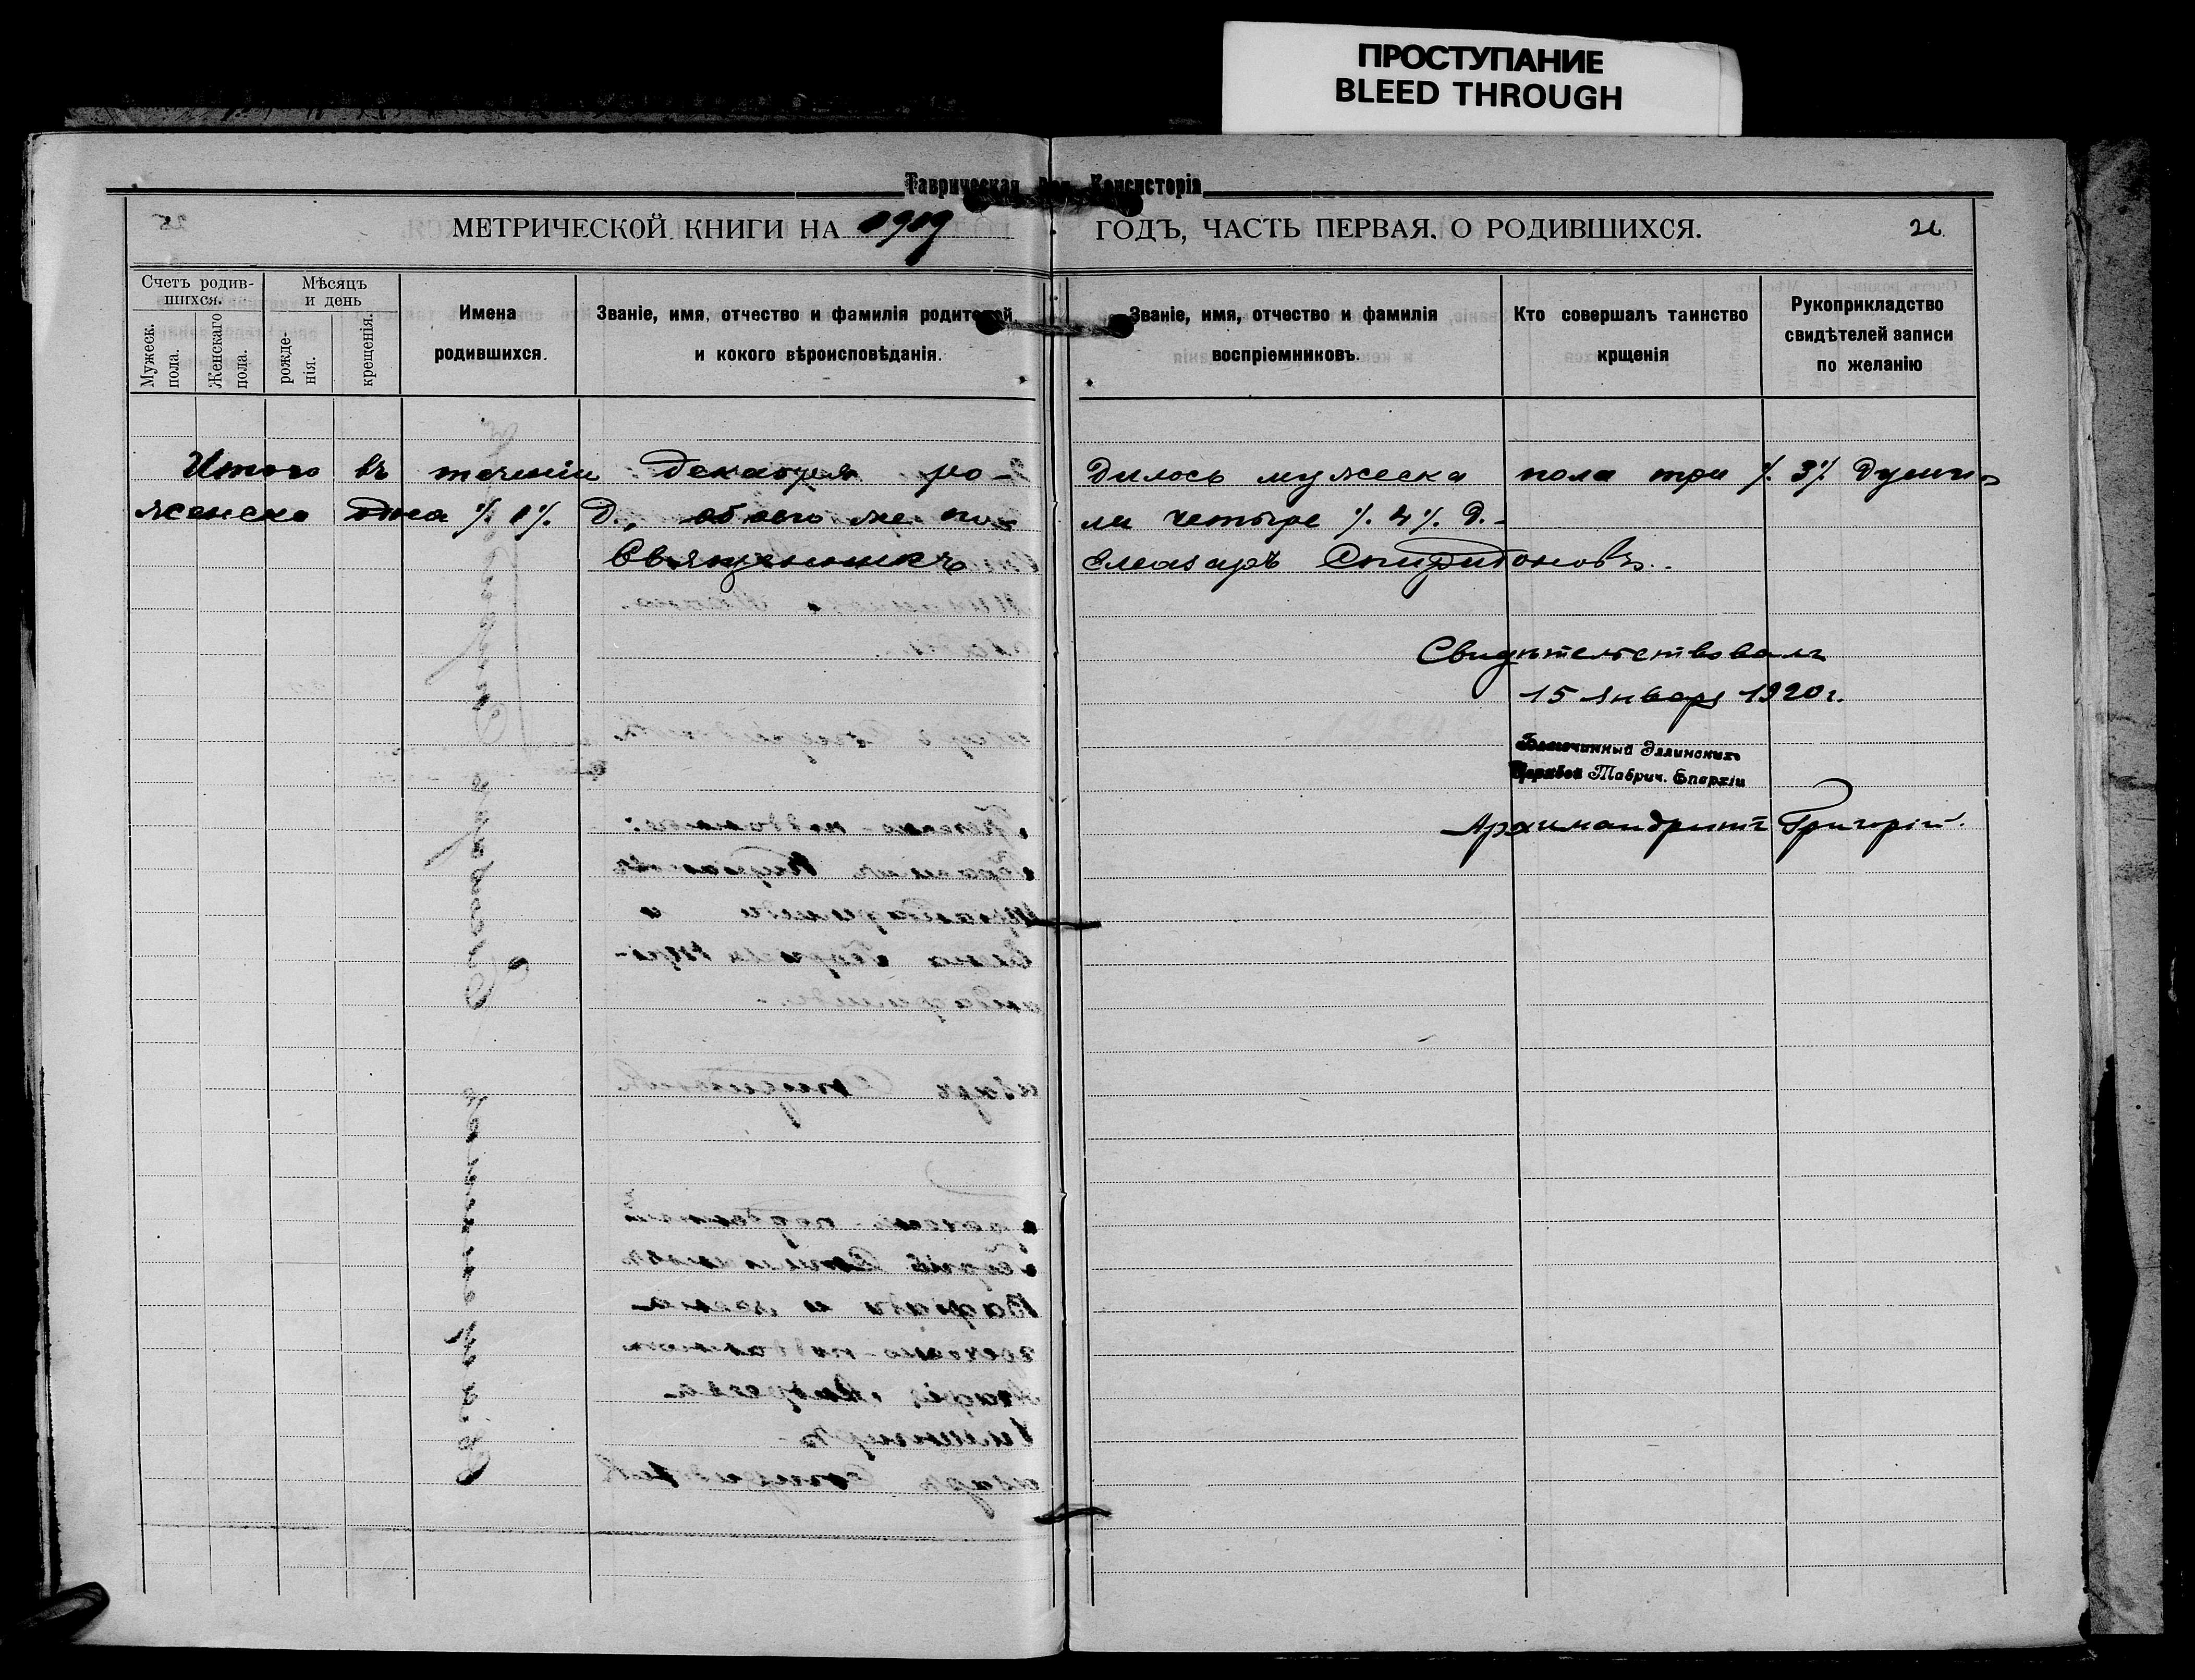 ПРОСТУПАНИЕ
BLEED THROUGH
Таврическая Консисторія
МЕТРИЧЕСКОЙ КНИГИ НА 1919 ГОДЪ, ЧАСТЬ ПЕРВАЯ, О РОДИВШИХСЯ. 26.
Счетъ родив-
шихся.
Мужеск.
пола.
Женскаго
пола.
Мѣсяцъ
и день
рожде-
нія.
крещенія.
Имена
родившихся.
Званіе, имя, отчество и фамилія родителей
и кокого вѣроисповѣданія.
Званіе, имя, отчество и фамилія
воспріемниковъ.
Кто совершалъ таинство
крщенія
Рукоприкладство
свидѣтелей записи
по желанію
Итого въ теченіи декабря ро- дилось мужеска пола три /. 3/. души
женска одна /. 1/. д., обоего же по- ла четыре /. 4/. д.-
Священникъ Елеазаръ Спиридоновъ.
Свидѣтельствовалъ
15 января 1920 г.
Благочинный Эллинскихъ
Церквей Таврич. Епархіи
Архимандритъ Григорій.